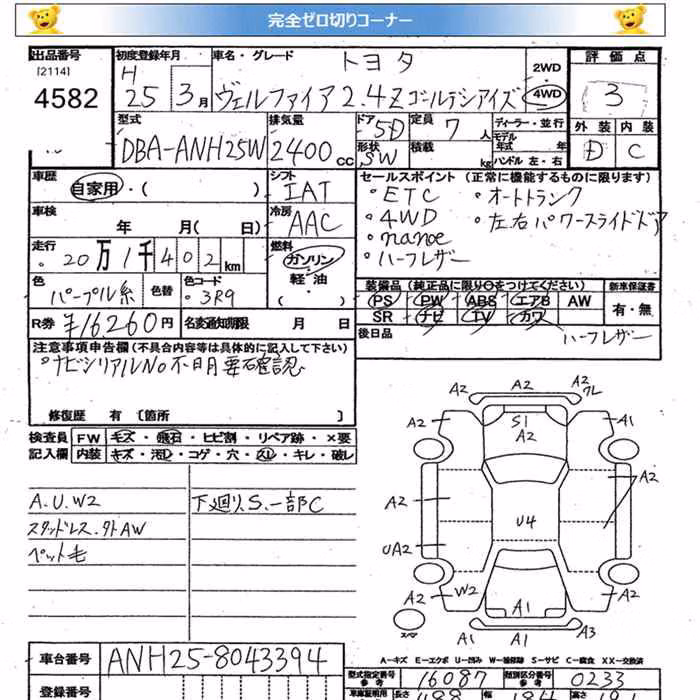 完全ゼロ切りコーナー
出品番号 初度登録年月 車名・グレード トヨタ 2WD 評価点
[2114] H
4582 25 3月 ヴェルファイア2.4Z ゴールデンアイズ 4WD 3
型式 排気量 ドア 5D 定員 7人 ディーラー・並行 外装 内装
DBA-ANH25W 2400cc 形状 SW 積載 kg モデル年式 年 D C
ハンドル 左・右
車歴 自家用・( ) シフト IAT セールスポイント (正常に機能するものに限ります)
車検 年 月( 日) 冷房 AAC
・ETC ・オートトランク
・4WD ・左右パワースライドドア
・nanoe
・ハーフレザー
走行 20万1千402km 燃料 ガソリン・軽油・( )
色 パープル系 色替 色コード 3R9
装備品 (純正品に限り○をつけてください) 新車保証書
PS PW ABS エアB AW 有・無
SR ナビ TV カワ
R券 ¥16260円 名変通知期限 月 日 後日品 ハーフレザー
注意事項申告欄(不具合内容等は具体的に記入して下さい)
・ナビシリアルNo不明要確認
修復歴 有 [箇所 ]
検査員 FW キズ・飛石・ヒビ割・リペア跡・×要
記入欄 内装 キズ・汚レ・コゲ・穴・スレ・キレ・破レ
A.U.W2 下廻りS.一部C
スタッドレス.外AW
ペット毛
A2 A2 A2 フレ
A2 S1 A1
A2
A2 A2
U4
UA2
A2 W2 A2
A1
スペア A1 A1 A3
A-キズ E-エクボ U-凹み W-補修跡 S-サビ C-腐食 XX-交換済
車台番号 ANH25-8043394
型式指定番号 参考 16087 類別区分番号 参考 0233
登録番号
長さ 488 幅 184